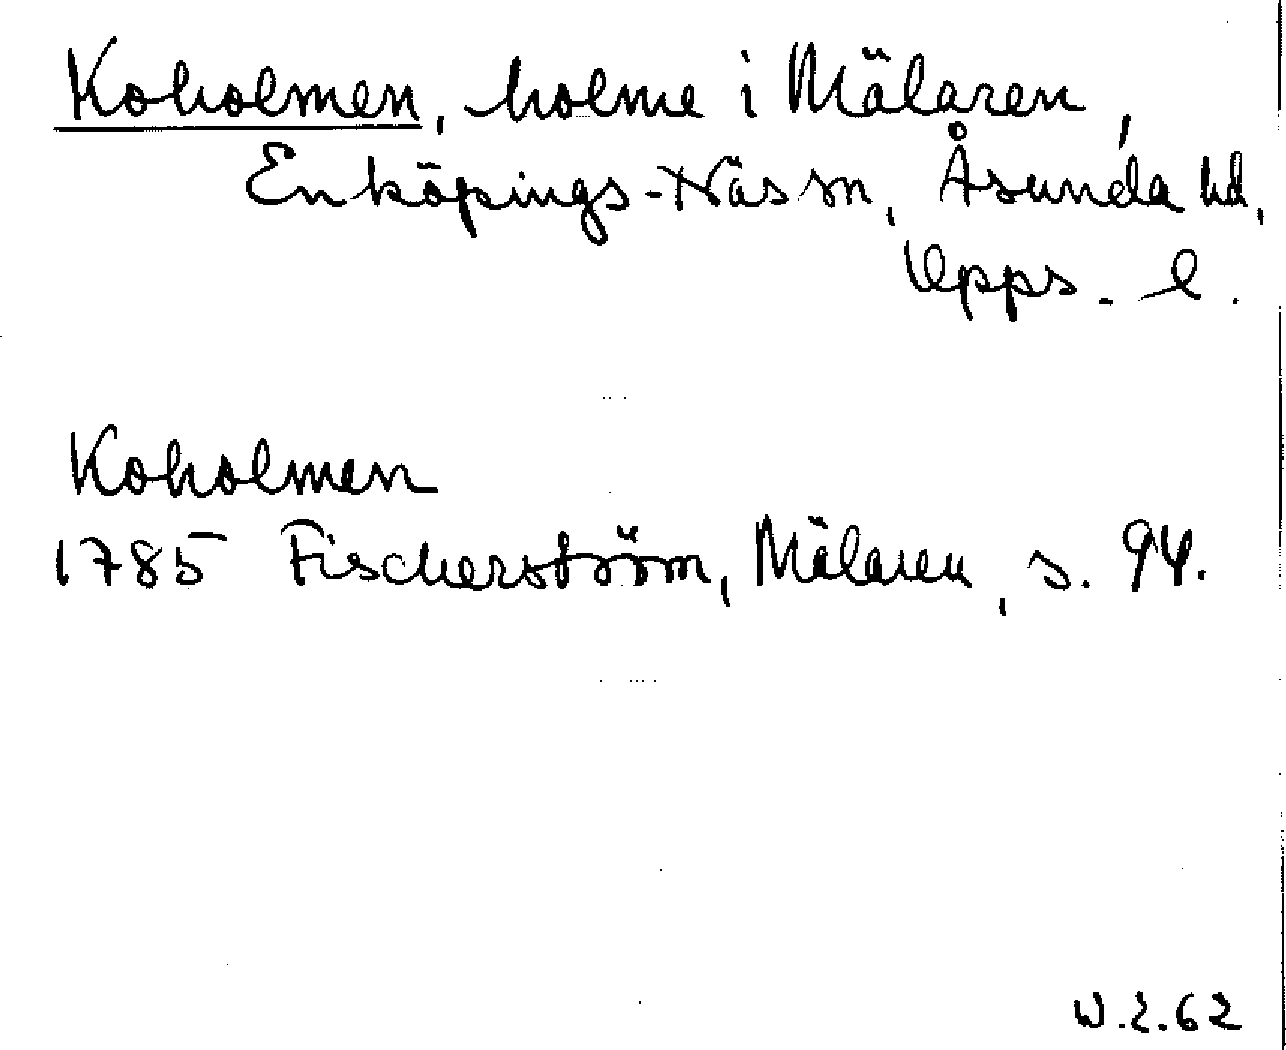 Koholmen, holme i Mälaren,
Enköpings-Näs sn, Åsunda hd,
Upps. l.
Koholmen
1785 Fischerström, Mälaren, s. 94.
W.Z.62